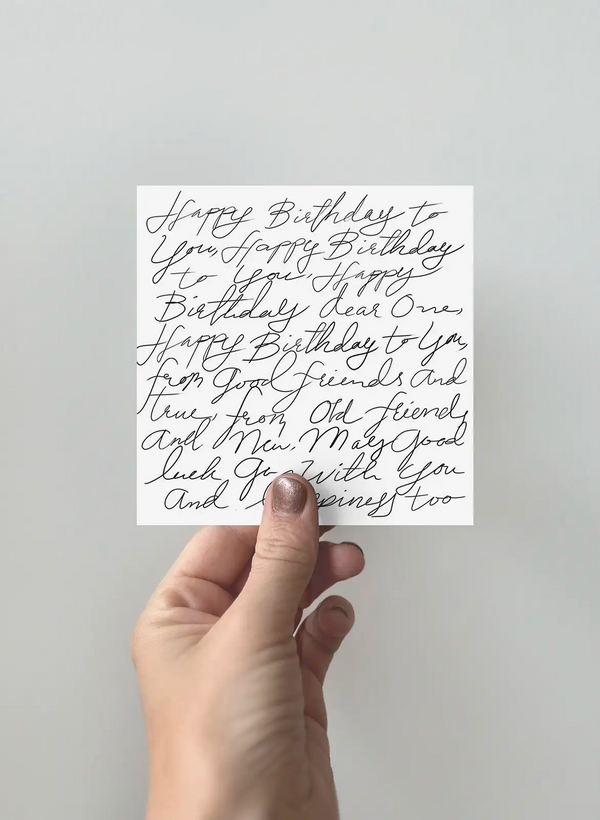 Happy Birthday to
You, Happy Birthday
to you, Happy
Birthday dear One,
Happy Birthday to You,
from good friends and
true, from Old friends
And New. May Good
luck Go With You
And too